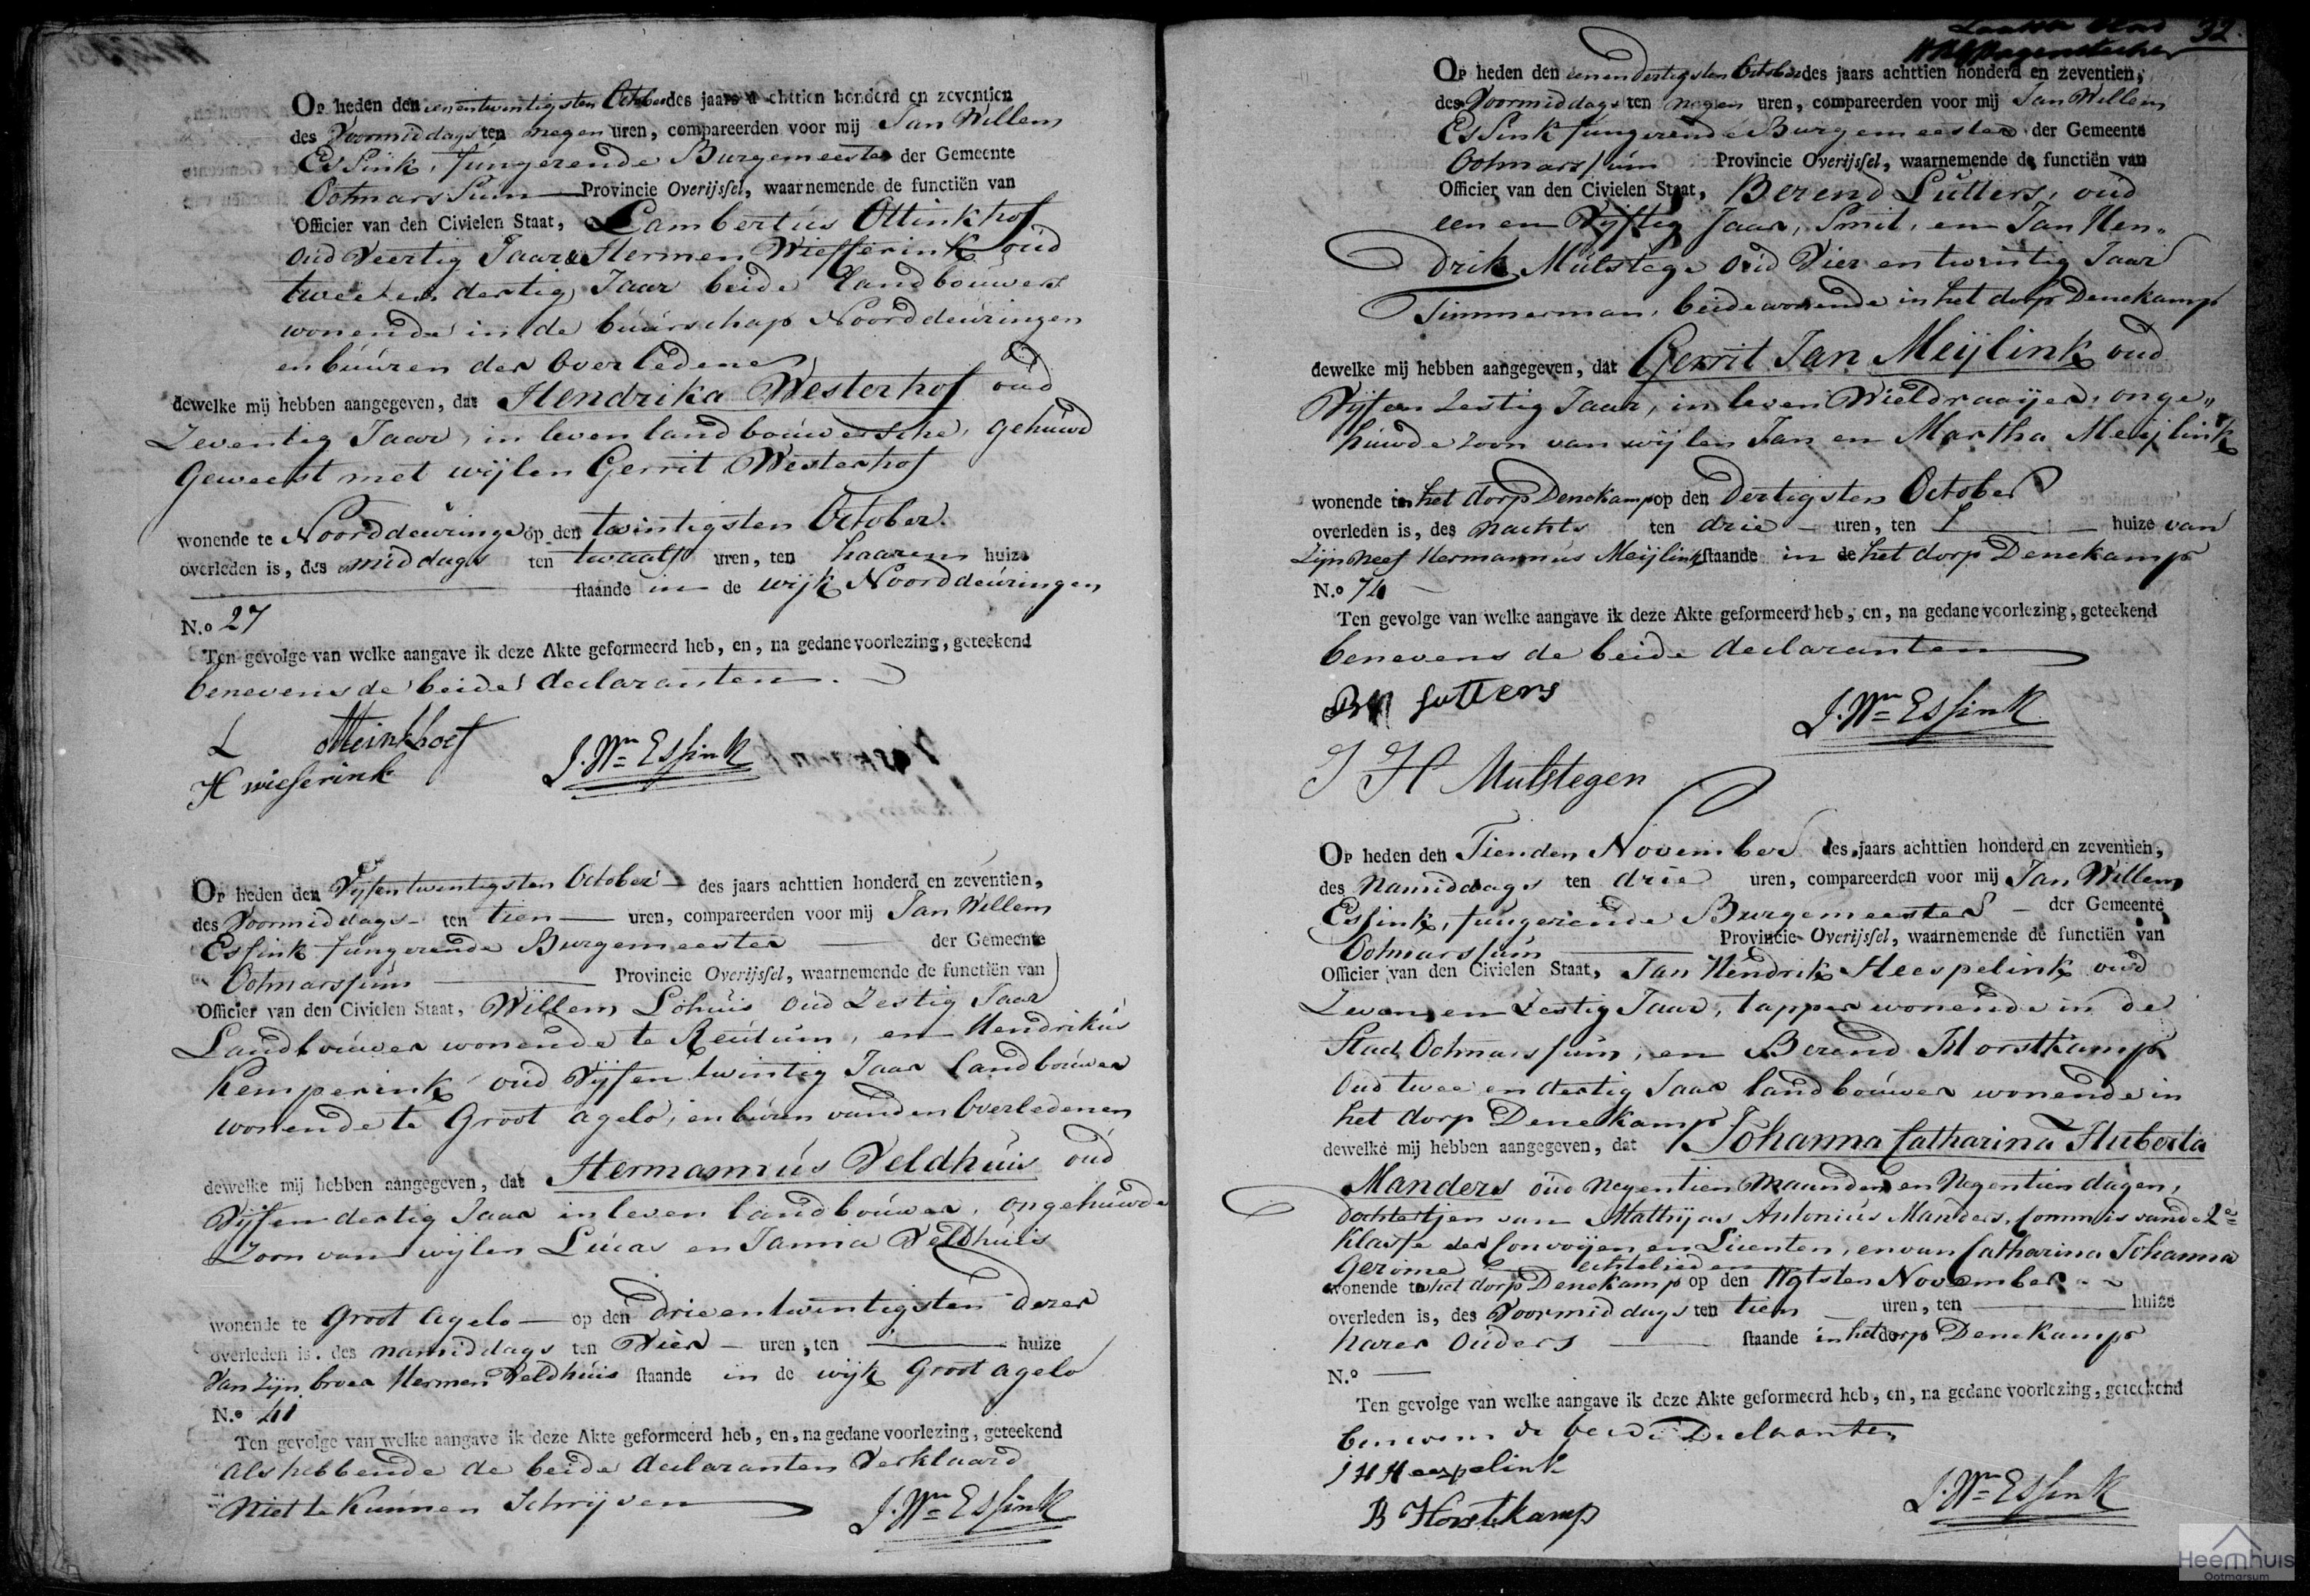 Op heden den eenentwintigsten October des jaars achttien honderd en zeventien
des Voormiddags ten negen uren, compareerden voor mij Jan Willem
Essink, fungerende Burgemeester der Gemeente
Ootmarssum Provincie Overijssel, waarnemende de functiën van
Officier van den Civielen Staat, Lambertus Ottinkhof
oud Veertig Jaar & Hermen Wiefferink oud
twee en dertig Jaar beide Landbouwers
wonende in de buurschap Noorddeuringen
en buuren der overledene
dewelke mij hebben aangegeven, dat Hendrika Westerhof oud
Zeventig Jaar, in leven landbouwersche, gehuwd
geweest met wijlen Gerrit Westerhof
wonende te Noorddeuringe op den twintigsten October
overleden is, des middags ten twaalf uren, ten haaren huize
staande in de wijk Noorddeuringen
N.o 27
Ten gevolge van welke aangave ik deze Akte geformeerd heb, en, na gedane voorlezing, geteekend
benevens de beide declaranten.
L Otteinkhoef
H wieferink
J. Wm Essink
Op heden den Vijfentwintigsten October des jaars achttien honderd en zeventien,
des Voormiddags ten tien uren, compareerden voor mij Jan Willem
Essink fungerende Burgemeester der Gemeente
Ootmarssum Provincie Overijssel, waarnemende de functiën van
Officier van den Civielen Staat, Willem Lohuis oud Zestig Jaar
Landbouwer wonende te Reutum, en Hendrikus
Kemperink oud Vijfentwintig Jaar Landbouwer
wonende te Groot agelo, en buren van den Overledenen
dewelke mij hebben aangegeven, dat Hermannus Veldhuis oud
Vijfendertig Jaar in leven landbouwer, ongehuwde
Zoon van wijlen Lucas en Janna Veldhuis
wonende te Groot Agelo op den drieentwintigsten dezer
overleden is, des namiddags ten Vier uren, ten huize
Van Zijn broer Hermen Veldhuis staande in de wijk Groot agelo
N.o 41
Ten gevolge van welke aangave ik deze Akte geformeerd heb, en, na gedane voorlezing, geteekend
als hebbende de beide declaranten Verklaard
niet te kunnen Schrijven
J. Wm Essink
Laatste blad 32
Op heden den eenendertigsten October des jaars achttien honderd en zeventien,
des Voormiddags ten negen uren, compareerden voor mij Jan Willem
Essink fungerende Burgemeester der Gemeente
Ootmarssum Provincie Overijssel, waarnemende de functiën van
Officier van den Civielen Staat, Berend Lutters, oud
een en Vijftig Jaar, Smit, en Jan Hen„
drik Mulstege oud Vier en twintig Jaar
Timmerman, beide wonende in het dorp Denekamp
dewelke mij hebben aangegeven, dat Gerrit Jan Meijlink oud
Vijf en Zestig Jaar, in leven Wieldraaijer, onge„
huwde zoon van wijlen Jan en Martha Meijlink
wonende in het dorp Denekamp op den Dertigsten October
overleden is, des nachts ten drie uren, ten huize van
Zijn neef Hermannus Meijlink staande in de het dorp Denekamp
N.o 74
Ten gevolge van welke aangave ik deze Akte geformeerd heb, en, na gedane voorlezing, geteekend
benevens de beide declaranten
lutters
J. Wm Essink
J H Mulstegen
Op heden den Tienden November des jaars achttien honderd en zeventien,
des Namiddags ten drie uren, compareerden voor mij Jan Willem
Essink, fungerende Burgemeester der Gemeente
Ootmarssum Provincie Overijssel, waarnemende de functiën van
Officier van den Civielen Staat, Jan Hendrik Heespelink oud
Zeven en Zestig Jaar, tapper wonende in de
Stad Ootmarssum, en Berend Horstkamp
oud twee en dertig Jaar landbouwer wonende in
het dorp Denekamp
dewelke mij hebben aangegeven, dat Johanna Catharina Huberta
Manders oud Negentien Maanden en Negentien dagen,
dochtertjen van Matthijas Antonius Manders, Commis van de 2e
Klasse der Convoijen en Licenten, en van Catharina Johanna
Gerome echtelieden
wonende te het dorp Denekamp op den 11gtsten November
overleden is, des Voormiddags ten tien uren, ten huize
harer Ouders staande in het dorp Denekamp
N.o
Ten gevolge van welke aangave ik deze Akte geformeerd heb, en, na gedane voorlezing, geteekend
benevens de beide Declaranten
J H Heespelink
B Horstkamp
J. Wm Essink
Heemhuis
Ootmarsum